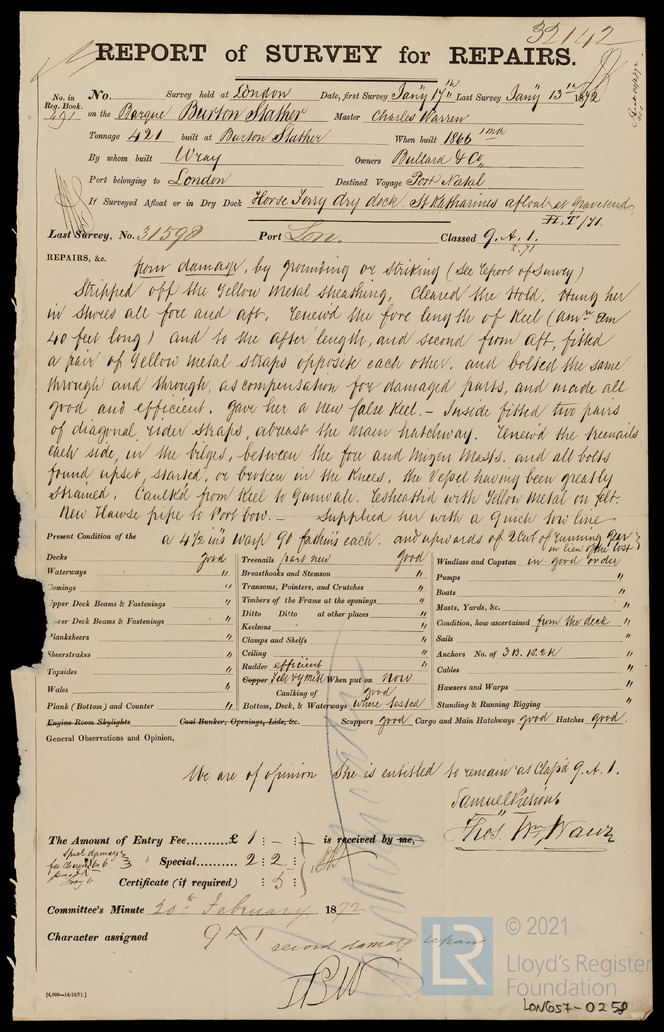 32142
REPORT of SURVEY for REPAIRS.
No. in Reg. Book. 291
No. Survey held at London Date, first Survey Jany 17th Last Survey Jany 13th 1872
on the Barque Burton Stather Master Charles Warren
Tonnage 421 built at Burton Stather When built 1866 1md
By whom built Wray Owners Bullard & Co.
Port belonging to London Destined Voyage Port Natal
If Surveyed Afloat or in Dry Dock Horse Ferry dry dock. St Katharines afloat & Gravesend
Last Survey, No. 31598 Port Lon. Classed 9.A.1.
5.71
REPAIRS, &c. from damage, by grounding or striking (See Report of Survey)
Stripped off the Yellow Metal sheathing, Cleared the Hold, Hung her
in Shores all fore and aft. Renew'd the fore length of Keel (Amn Elm
40 feet long) and to the after length, and second from aft, fitted
a pair of Yellow Metal straps opposite each other, and bolted the same
through and through, as compensation for damaged parts, and made all
good and efficient. Gave her a new false Keel. – Inside fitted two pairs
of diagonal rider straps, abreast the main hatchway. Renew'd the treenails
each side, in the bilges, between the fore and Mizen Masts. and all bolts
found upset, started, or broken in the Knees, the Vessel having been greatly
strained. Caulk'd from Keel to Gunwale. Resheath'd with Yellow Metal on felt.
New Hawse pipe to Port bow. – Supplied her with a 9 inch tow line
a 4 1/2 ins Warp 90 fathms each. and upwards of 2 Cwt of running Gear
in lieu of the lost
Present Condition of the
Decks good
Waterways "
Comings "
Upper Deck Beams & Fastenings "
Lower Deck Beams & Fastenings "
Planksheers "
Sheerstrakes "
Topsides "
Wales "
Plank (Bottom) and Counter "
Engine Room Skylights
Treenails part new Good
Breasthooks and Stemson "
Transoms, Pointers, and Crutches "
Timbers of the Frame at the openings "
Ditto Ditto at other places "
Keelsons "
Clamps and Shelfs "
Ceiling "
Rudder efficient "
Copper Felt & YMetl When put on Now
Caulking of good
Bottom, Deck, & Waterways where tested
Coal Bunker, Openings, Lids, &c.
Windlass and Capstan in good order
Pumps "
Boats "
Masts, Yards, &c. "
Condition, how ascertained from the deck
Sails "
Anchors No. of 3B. 1S. 2K
Cables "
Hawsers and Warps "
Standing & Running Rigging "
Scuppers good Cargo and Main Hatchways good Hatches good.
General Observations and Opinion,
We are of opinion She is entitled to remain as Class'd 9.A.1.
Thos. Wm Wawn
The Amount of Entry Fee..........£ 1 : – : is received by me,
Special......... 2 : 2 :
Certificate (if required) : 5 :
Committee's Minute 20th February 1872
Character assigned 9A1
record damage repair
[4,000—14/10/71.]
LR
© 2021
Lloyd's Register
Foundation
LON657-0258